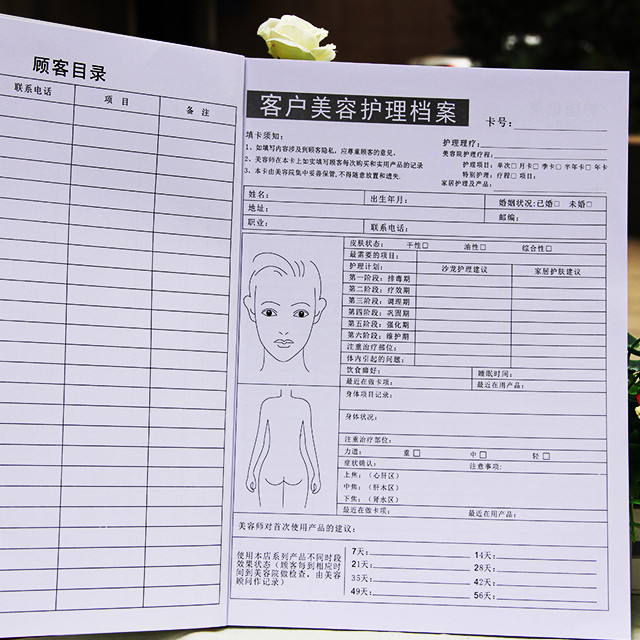 顾客目录
联系电话 项目 备注
客户美容护理档案
卡号:
填卡须知:
1、如填写内容涉及到顾客隐私, 应尊重顾客的意见.
2、美容师在本卡上如实填写顾客每次购买和实用产品的记录
3、本卡由美容院集中妥善保管, 不得随意放置和遗失.
护理理疗:
美容院护理疗程:
护理项目: 单次□ 月卡□ 季卡□ 半年卡□ 年卡
特别护理: 疗程□ 项目:
家居护理及产品:
姓名: 出生年月: 婚姻状况: 已婚□ 未婚□
地址: 邮编:
职业: 联系电话:
皮肤状态: 干性□ 油性□ 综合性□
最需要的项目:
护理计划: 沙龙护理建议 家居护肤建议
第一阶段: 排毒期
第二阶段: 疗效期
第三阶段: 调理期
第四阶段: 巩固期
第五阶段: 强化期
第六阶段: 维护期
注重治疗部位:
体内引起的问题:
饮食癖好: 睡眠时间:
最近在做卡项: 最近在用产品:
身体项目记录:
身体状况:
注重治疗部位:
力道: 重□ 中□ 轻□
症状确认: 注意事项:
上焦: (心肝区)
中焦: (肝木区)
下焦: (肾水区)
最近在做卡项: 最近在用产品:
美容师对首次使用产品的建议:
使用本店系列产品不同时段
效果状态 (顾客每到相应时
间到美容院做检查, 由美容
顾问作记录)
7天: 14天:
21天: 28天:
35天: 42天:
49天: 56天: